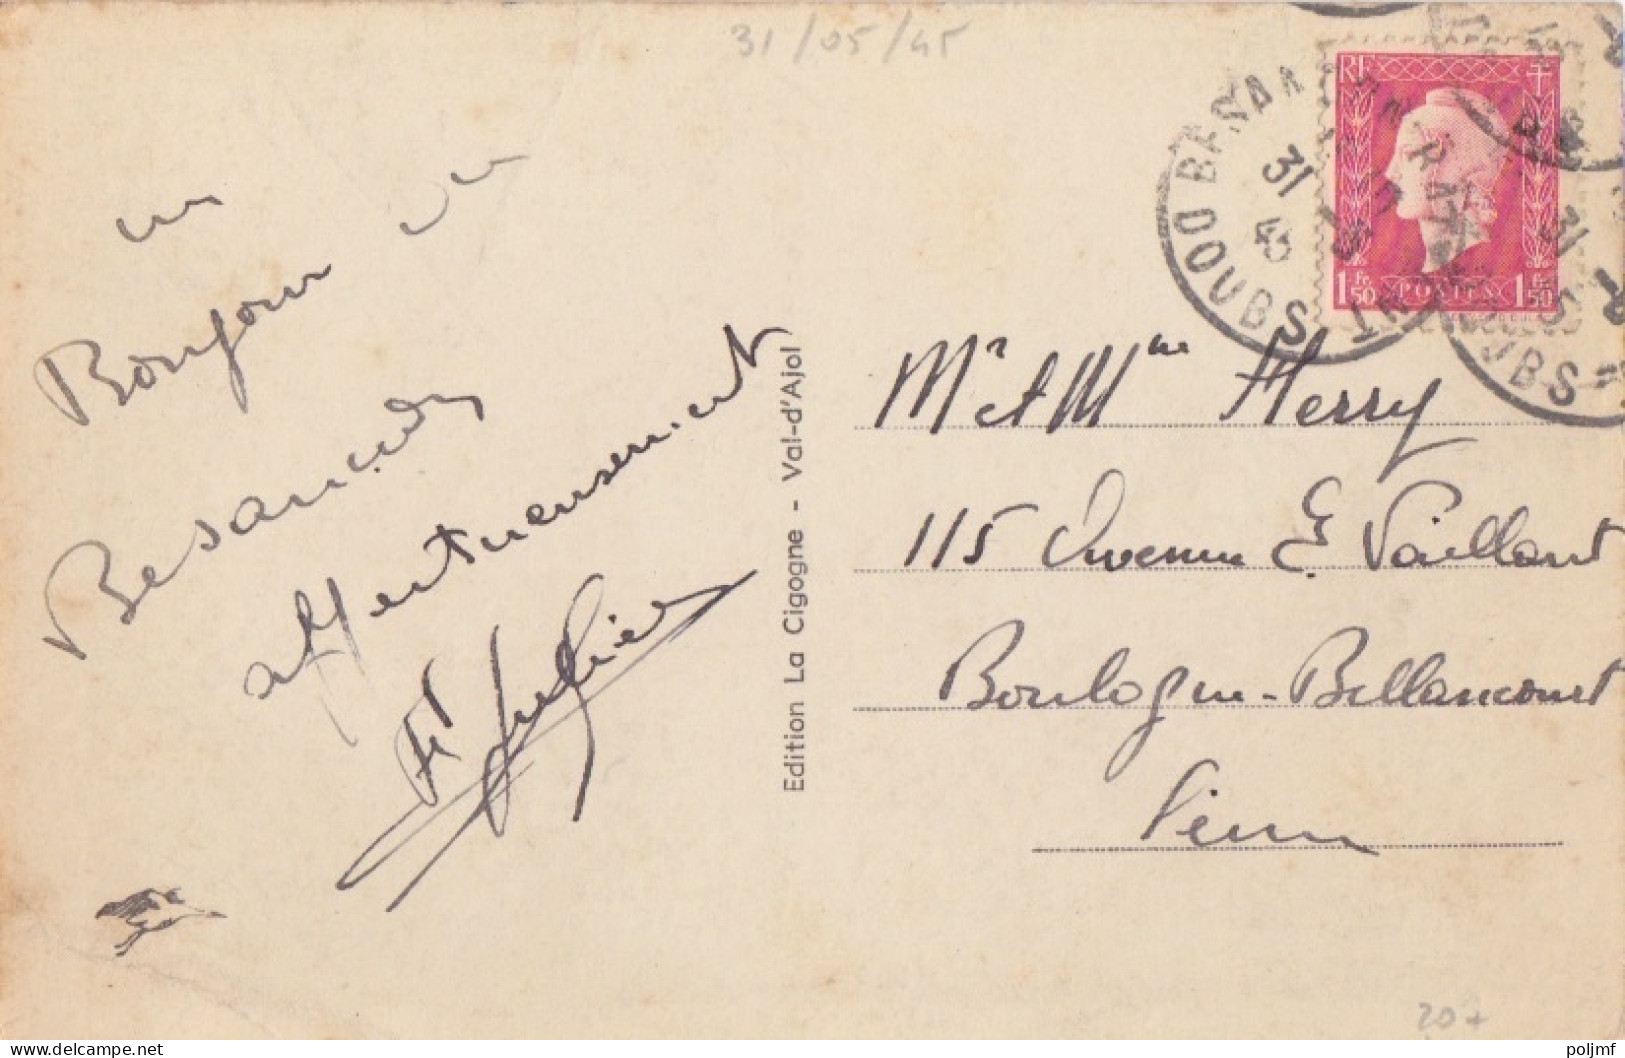 31/05/45
un
Bonjour de
Besançon
affectueusement
Edition La Cigogne - Val-d'Ajol
BESAN
DOUBS
31
45
RF
1Fr50 POSTES 1Fr50
31
UBS
Mr et Mme Herry
115 Avenue E. Vaillant
Boulogne-Billancourt
Seine
207
poljmf